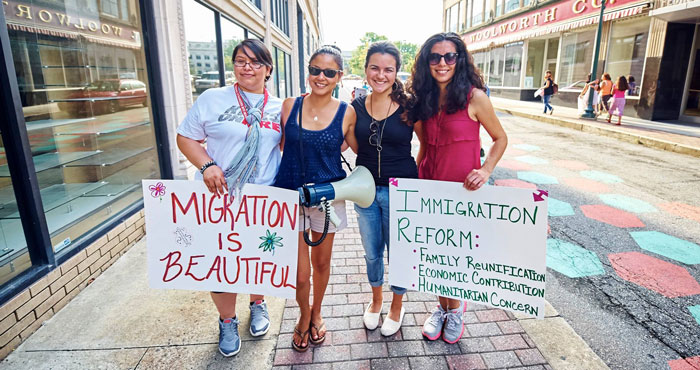 WOOLWORTH
WOOLWORTH CO.
MIGRATION
IS
BEAUTIFUL
IMMIGRATION
REFORM:
• FAMILY REUNIFICATION
• ECONOMIC CONTRIBUTION
• HUMANITARIAN CONCERN